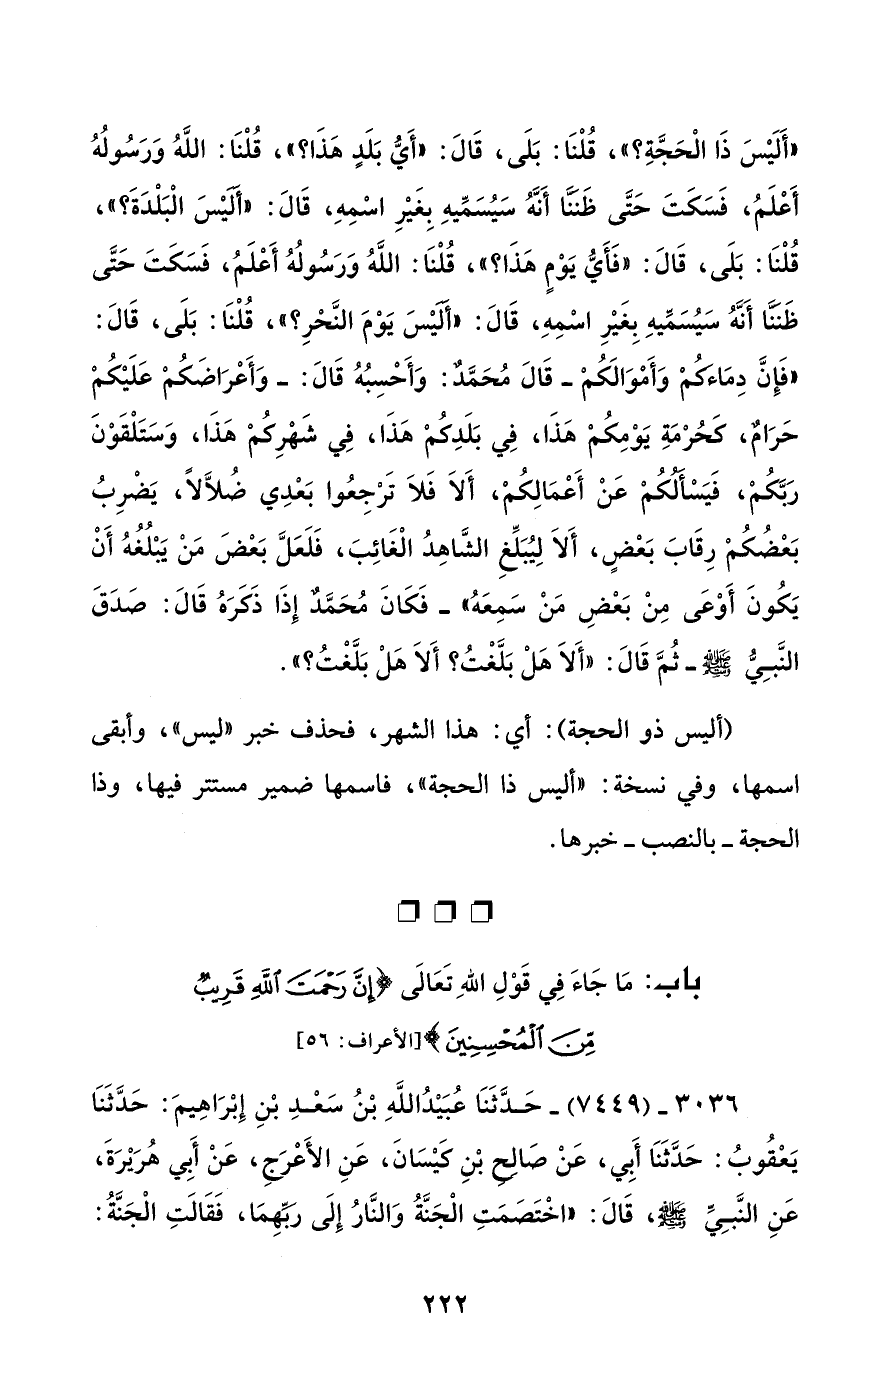 «أَلَيْسَ ذَا الْحَجَّةِ؟»، قُلْنَا: بَلَى، قَالَ: «أَيُّ بَلَدٍ هَذَا؟»، قُلْنَا: اللَّهُ وَرَسُولُهُ
أَعْلَمُ، فَسَكَتَ حَتَّى ظَنَنَّا أَنَّهُ سَيُسَمِّيهِ بِغَيْرِ اسْمِهِ، قَالَ: «أَلَيْسَ الْبَلْدَةَ؟»،
قُلْنَا: بَلَى، قَالَ: «فَأَيُّ يَوْمٍ هَذَا؟»، قُلْنَا: اللَّهُ وَرَسُولُهُ أَعْلَمُ، فَسَكَتَ حَتَّى
ظَنَنَّا أَنَّهُ سَيُسَمِّيهِ بِغَيْرِ اسْمِهِ، قَالَ: «أَلَيْسَ يَوْمَ النَّحْرِ؟»، قُلْنَا: بَلَى، قَالَ:
«فَإِنَّ دِمَاءَكُمْ وَأَمْوَالَكُمْ ـ قَالَ مُحَمَّدٌ: وَأَحْسِبُهُ قَالَ: ـ وَأَعْرَاضَكُمْ عَلَيْكُمْ
حَرَامٌ، كَحُرْمَةِ يَوْمِكُمْ هَذَا، فِي بَلَدِكُمْ هَذَا، فِي شَهْرِكُمْ هَذَا، وَسَتَلْقَوْنَ
رَبَّكُمْ، فَيَسْأَلُكُمْ عَنْ أَعْمَالِكُمْ، أَلاَ فَلاَ تَرْجِعُوا بَعْدِي ضُلاَّلاً، يَضْرِبُ
بَعْضُكُمْ رِقَابَ بَعْضٍ، أَلاَ لِيُبَلِّغِ الشَّاهِدُ الْغَائِبَ، فَلَعَلَّ بَعْضَ مَنْ يَبْلُغُهُ أَنْ
يَكُونَ أَوْعَى مِنْ بَعْضِ مَنْ سَمِعَهُ» ـ فَكَانَ مُحَمَّدٌ إِذَا ذَكَرَهُ قَالَ: صَدَقَ
النَّبِيُّ ﷺ ـ ثُمَّ قَالَ: «أَلاَ هَلْ بَلَّغْتُ؟ أَلاَ هَلْ بَلَّغْتُ؟».
(أليس ذو الحجة): أي: هذا الشهر، فحذف خبر «ليس»، وأبقى
اسمها، وفي نسخة: «أليس ذا الحجة»، فاسمها ضمير مستتر فيها، وذا
الحجة ـ بالنصب ـ خبرها.
باب: مَا جَاءَ فِي قَوْلِ اللهِ تَعَالَى ﴿إِنَّ رَحْمَتَ ٱللَّهِ قَرِيبٌ
مِّنَ ٱلْمُحْسِنِينَ﴾ [الأعراف: ٥٦]
٣٠٣٦ ـ (٧٤٤٩) ـ حَدَّثَنَا عُبَيْدُاللَّهِ بْنُ سَعْدِ بْنِ إِبْرَاهِيمَ: حَدَّثَنَا
يَعْقُوبُ: حَدَّثَنَا أَبِي، عَنْ صَالِحِ بْنِ كَيْسَانَ، عَنِ الأَعْرَجِ، عَنْ أَبِي هُرَيْرَةَ،
عَنِ النَّبِيِّ ﷺ، قَالَ: «اخْتَصَمَتِ الْجَنَّةُ وَالنَّارُ إِلَى رَبِّهِمَا، فَقَالَتِ الْجَنَّةُ:
٢٢٢